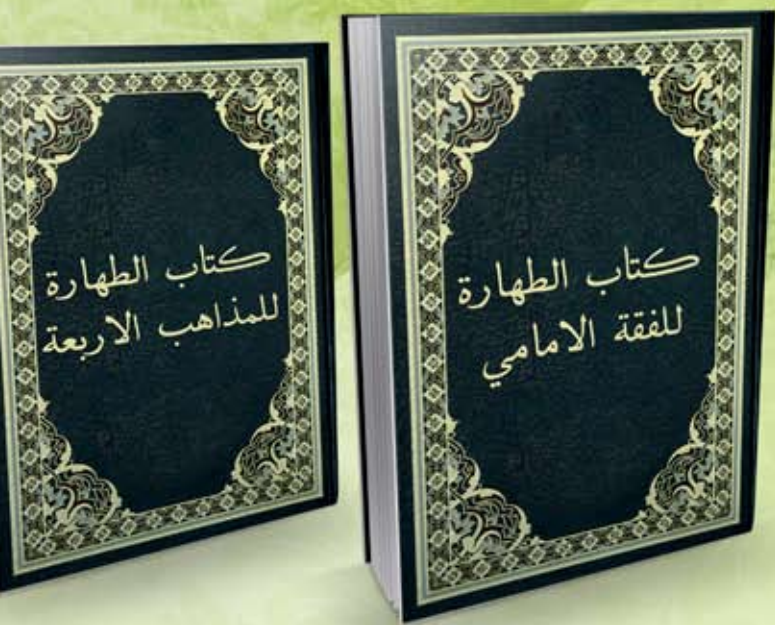 كتاب الطهارة
للفقة الامامي
كتاب الطهارة
للمذاهب الاربعة